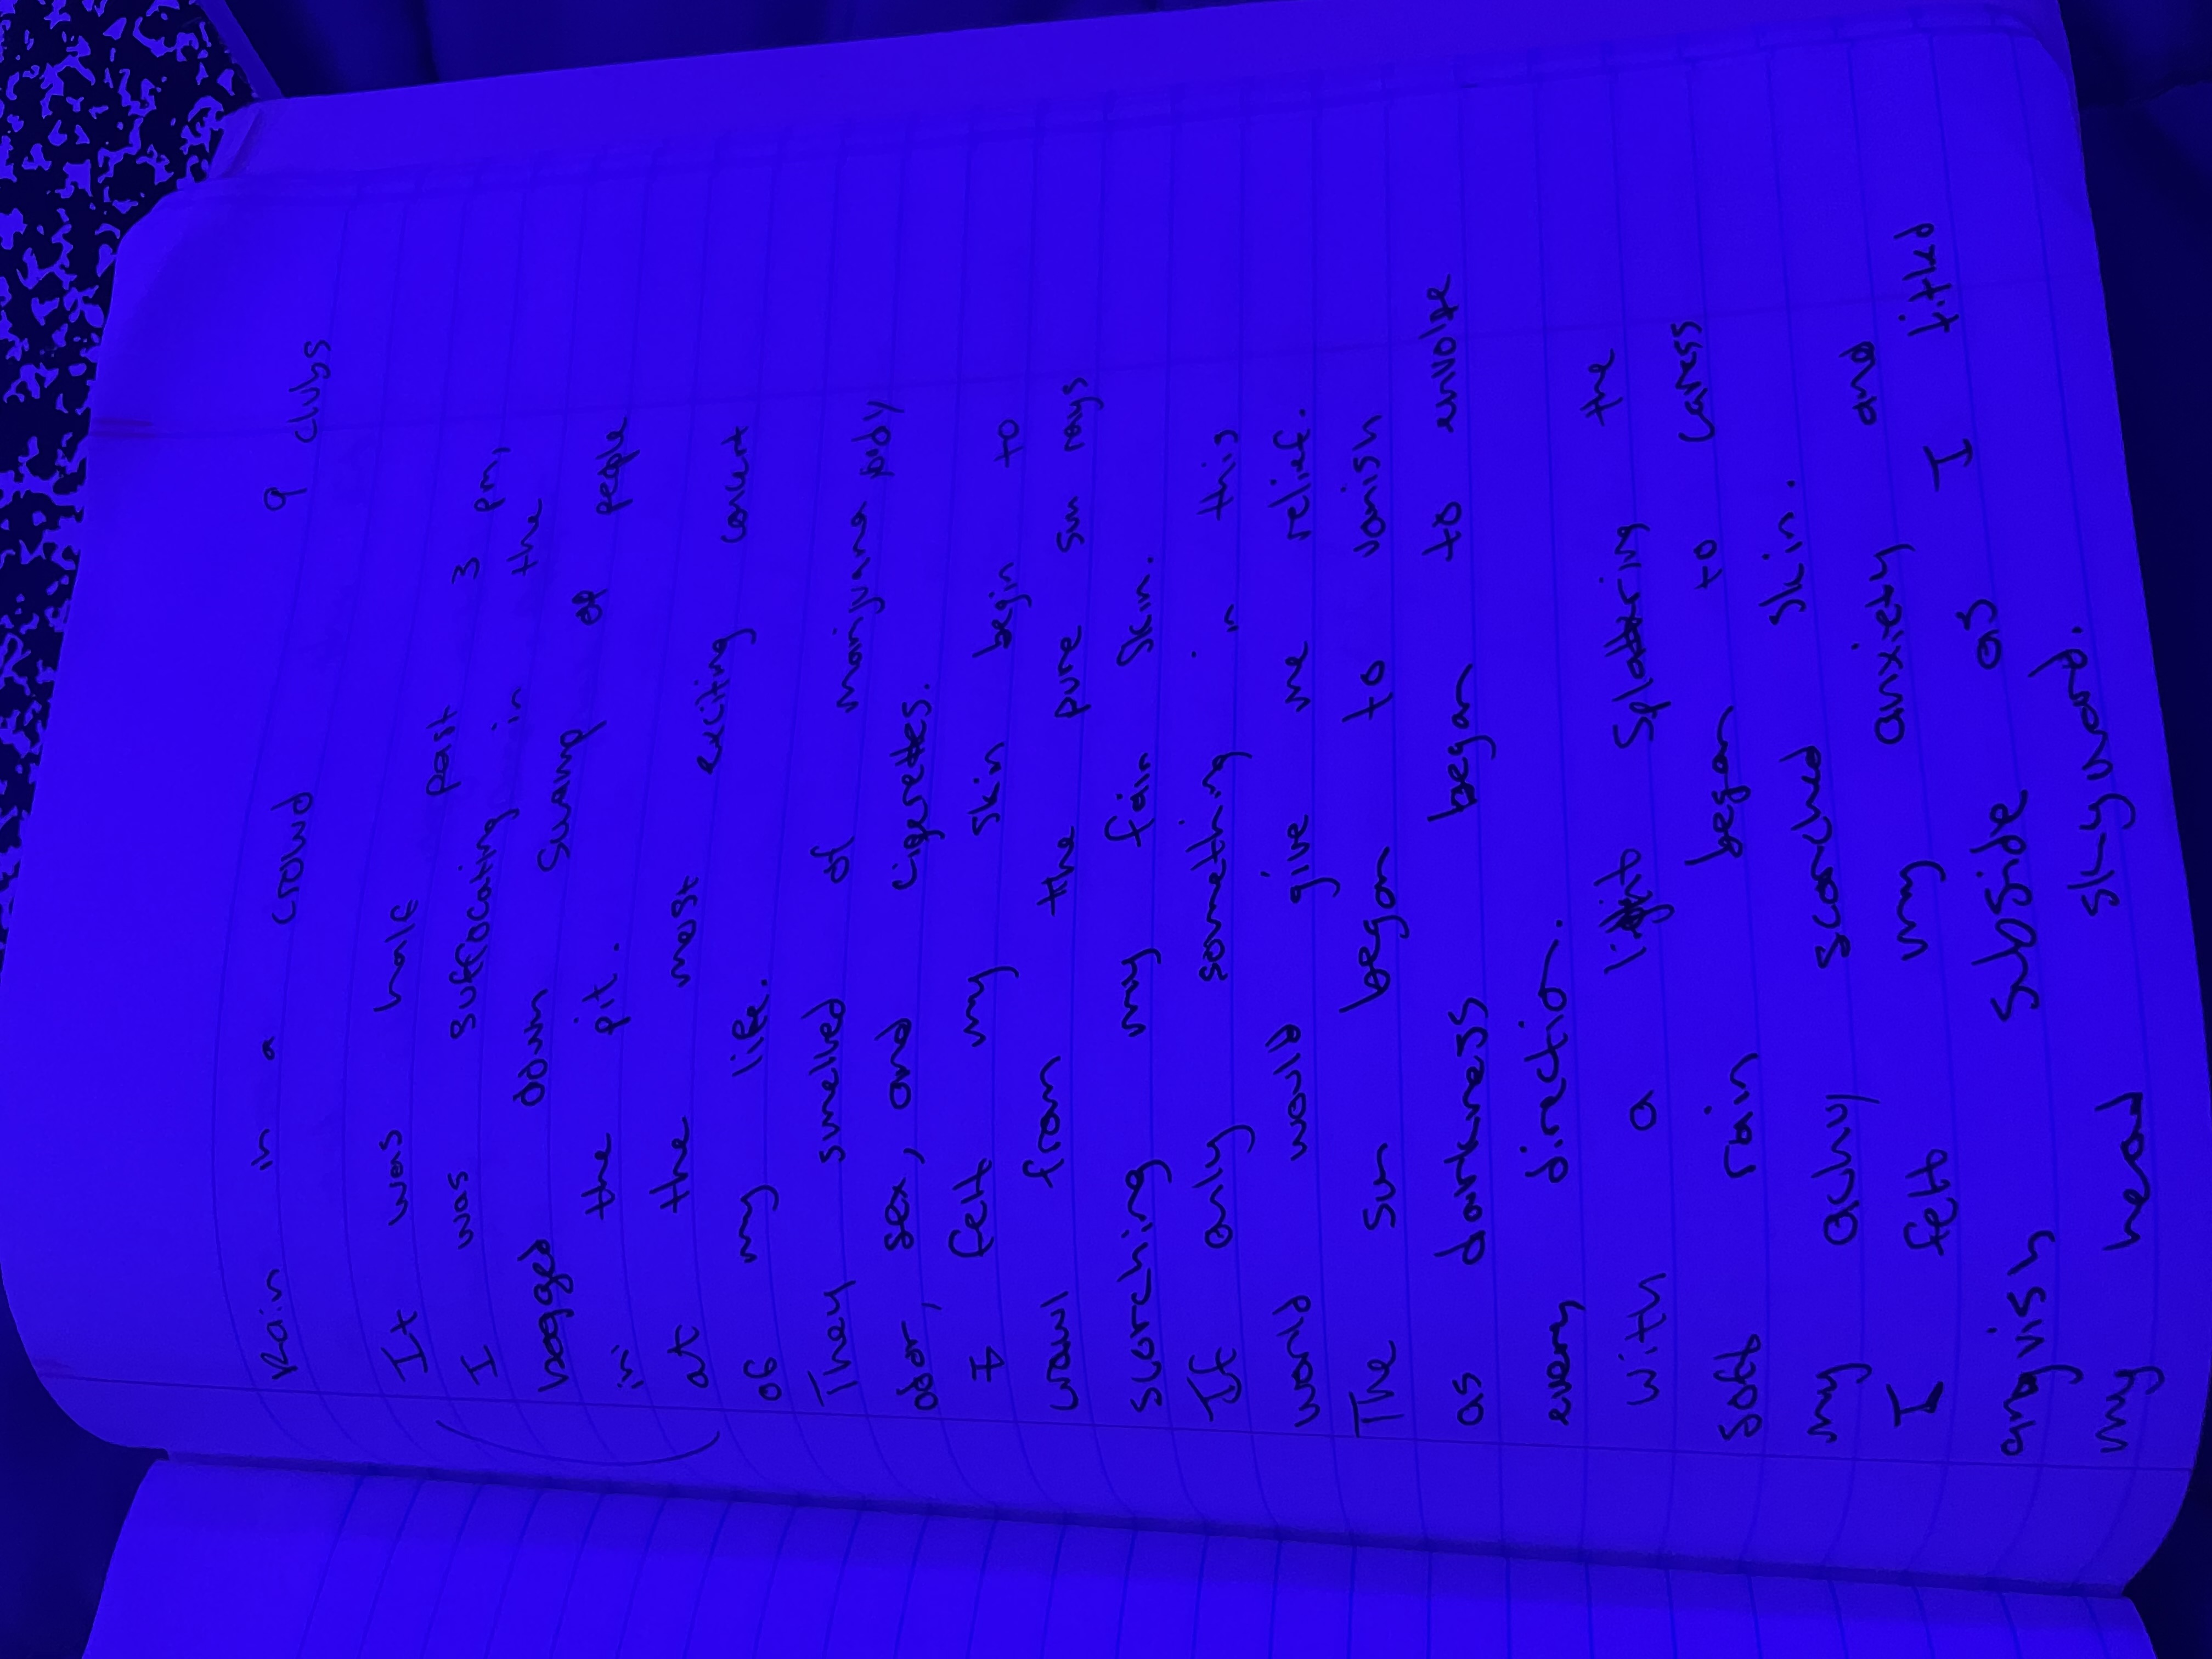 Rain in a crowd
9 clubs
It was half past 3 pm,
I was suffocating in the
bogged down swamp of people
in the pit.
at the most exciting concert
of my life.
They smelled of marijuana body
odor, sex, and cigerettes.
I felt my skin begin to
crawl from the pure sun rays
scorching my fair skin.
If only something in this
world would give me relief.
The sun began to vanish
as darkness began to envolte
every directio.
with a light splattering the
soft rain began to caress
my achy scorched skin.
I felt my anxiety and
angvish subside as I titled
my head skyward.